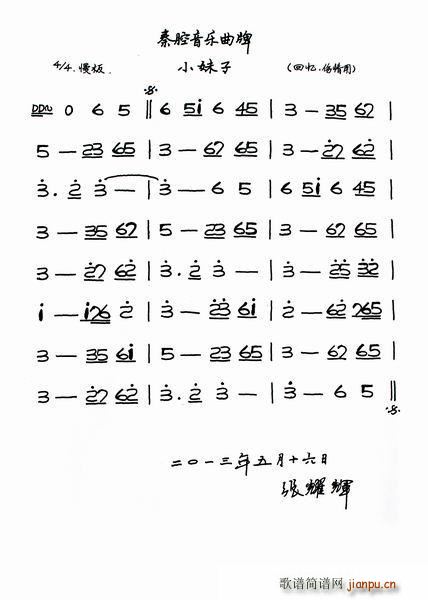 秦腔音乐曲牌
4/4 慢板 小妹子 (回忆、伤情用)
0 6 5 ‖ 6 5i 6 45 | 3 — 35 62 |
5 — 23 65 | 3 — 62 65 | 3 — 2̇7 62̇ |
3̇. 2̇ 3̇ — | 3̇ — 6 5 | 6 5i 6 45 |
3 — 35 62 | 5 — 23 65 | 3 — 62 65 |
3 — 2̇7 62̇ | 3̇. 2̇ 3̇ — | 3̇ — 2̇5 3̇2̇ |
i — i26 2̇ | 3̇ — 2̇3̇ 6i | 2̇ — 62̇ 265 |
3 — 35 6i | 5 — 23 65 | 3 — 62 65 |
3 — 2̇7 62̇ | 3̇. 2̇ 3̇ — | 3̇ — 6 5 ‖
二〇一三年五月十六日
张耀辉
歌谱简谱网
jianpu.cn